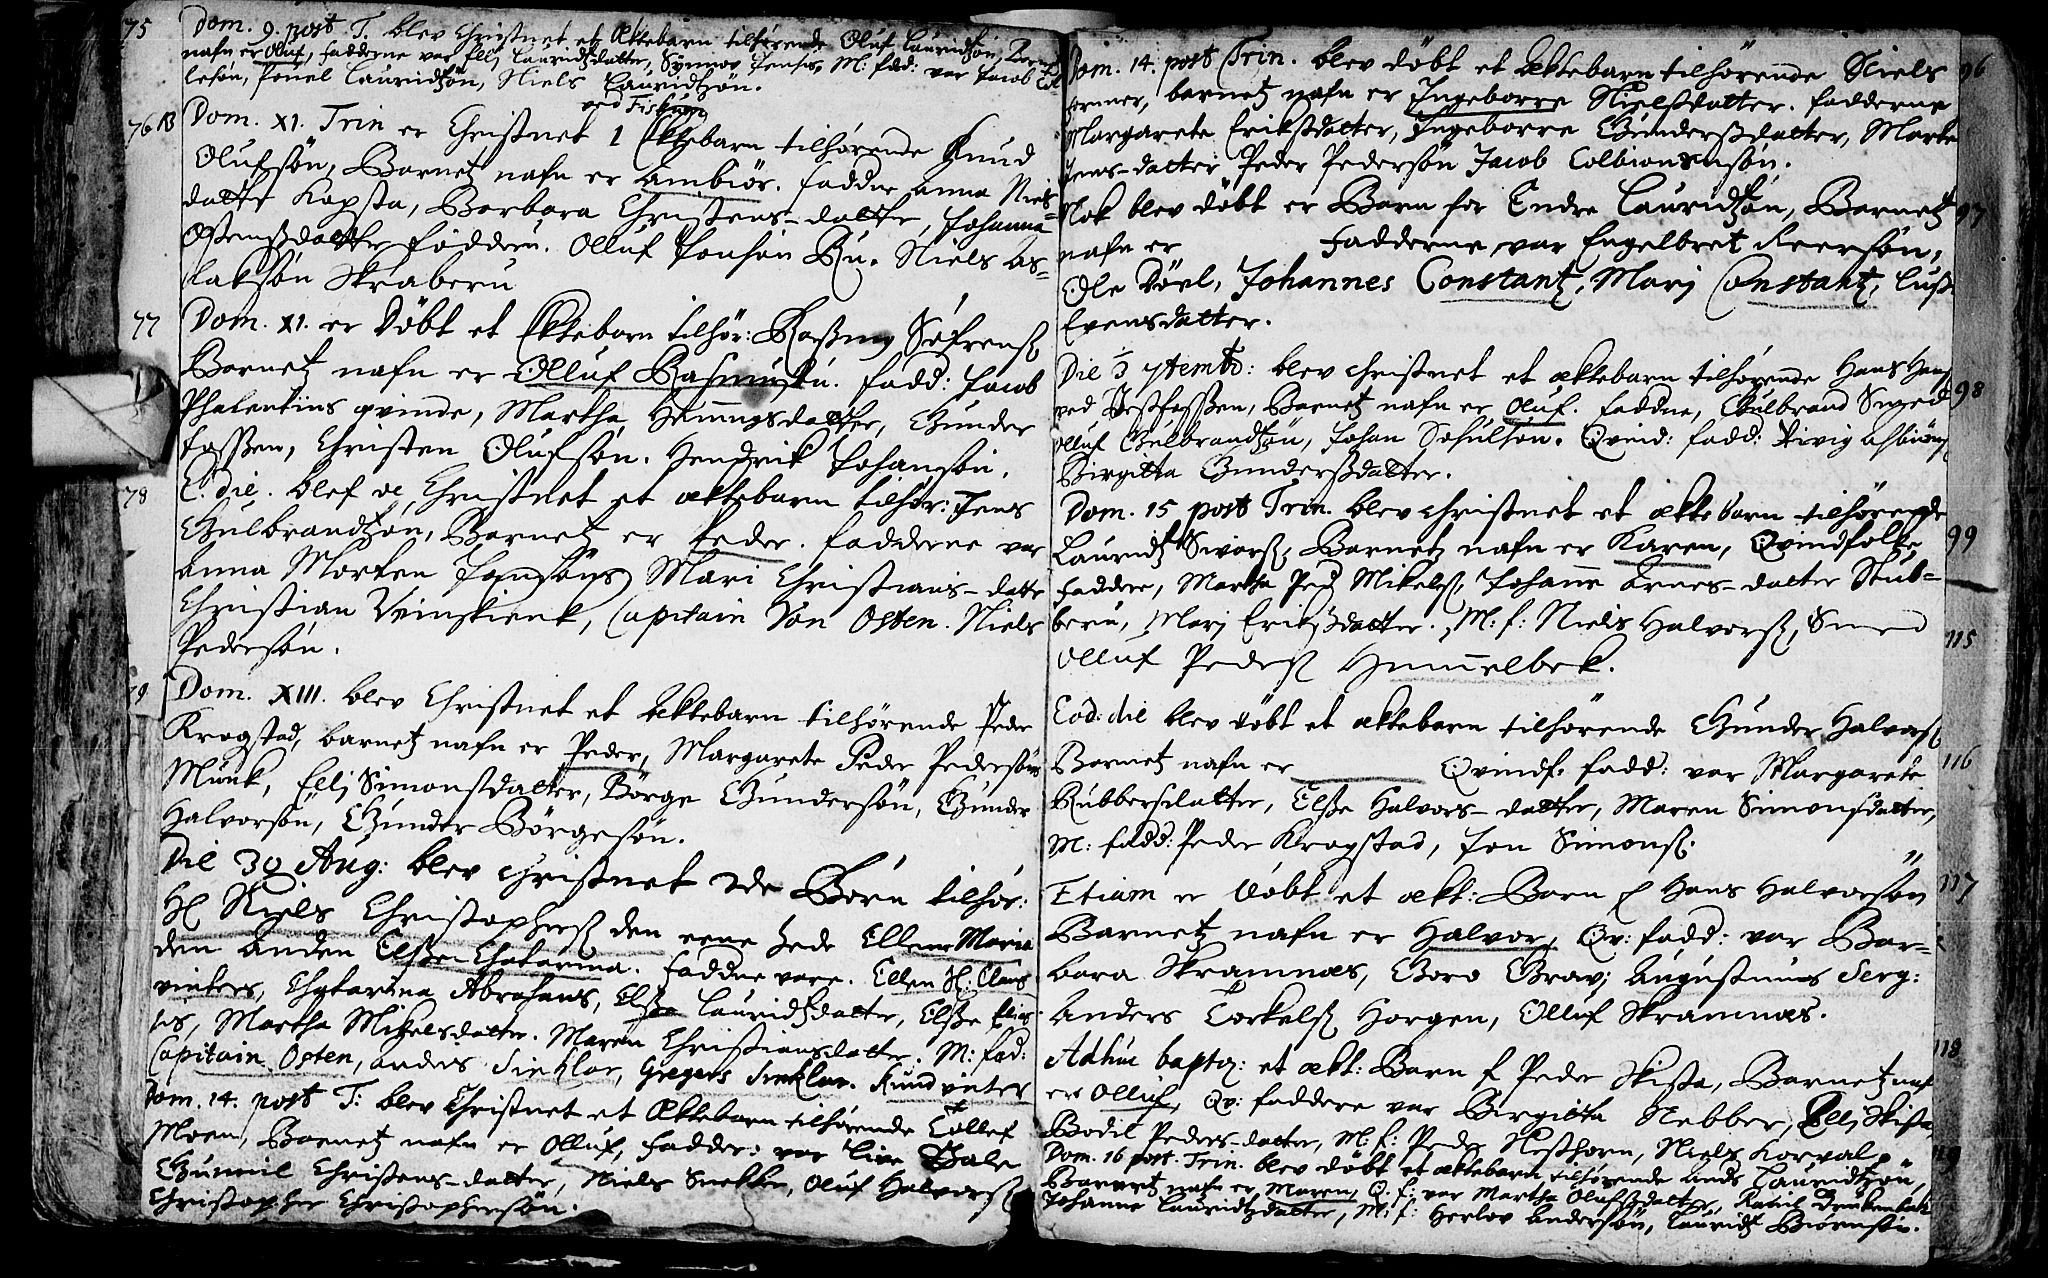 75 Dom. 9. post T. blev Christnet et Ektebarn tilhørende Oluf Lauridtzøn,
nafn er Oluf, fadderne var Elli Lauridtzdatter, Synnov Jensis, M: fad: var Jacob
lesøn, Povel Lauridtzøn, Niels Lauridtzøn.
ved Fiskum
76 Dom. XI. Trin er Christnet 1 Ektebarn tilhørende Knud
Olufsøn, Barnetz nafn er Ambiør. faddne Anna Niels-
datter Kopsta, Barbara Christens-datter, Johanna
Ostensdatter føddern. Olluf Jonsøn Ru. Niels As-
laksøn Skraberu
77 Dom. XI. er Døbt et Ektebarn tilhør: Rasmus Søfrens
Barnetz nafn er Olluf Rasmusøn. fadd: Jacob
Phalentins qvinde, Martha Hemingsdatter, Gunder
fossen, Christen Olufsøn. Hendrik Johansøn.
78 E. die. blef oc Christnet et ektebarn tilhør: Jens
Gulbrandtzøn, Barnetz er Peder. fadderne var
Anna Morten Jonsøns, Mari Christians-datter
Christian Veinskienk, Capitain Von Osten. Niels
Pedersøn.
79 Dom. XIII. blev Christnet et Ektebarn tilhørende Peder
Krogstad, barnetz nafn er Peder, Margarete Peder Pedersøn
Munk, Elli Simonsdatter, Børge Gundersøn, Gunder
Halvorsøn, Gunder Børgesøn.
Die 30 Aug: blev christnet 2de Børn tilhør:
Hr Niels Christophers den eene hede Ellene Maria
den anden Elsse Chatarina. faddne vare. Ellen Hr: Claus
vinters, Chatarina Abrahams, Elsse Lauridtzdatter, Elsse Elias
sis, Martha Mikelsdatter. Maren Christiansdatter. M: fad:
Capitain Osten, anders Sinklar, Gregers Sinklar. Knud vinter
Dom. 14. post T: blev Christnet et Ektebarn tilhørende Tollef
Moen, Barnetz nafn er Olluf, fadder: var Live Bale
Gunnil Christens-datter, Niels Snekker, Oluf Halvors
Christopher Christophersøn.
Dom. 14. post Trin. blev døbt et Ektebarn tilhørende Niels 96
Former, barnetz nafn er Ingeborre Nielsdatter. fadderne
Margarete Eriksdatter, Ingeborre Gundersdatter, Marte
Jens-datter Peder Pedersøn Jacob Colbiørnsøn.
Nok blev døbt et Barn for Endre Lauridtzøn, Barnetz 97
nafn er Fadderne var Engelbret Reersøn,
Ole Døvl, Johannes Constantz, Mari Constantz,
Evensdatter.
Die 3 7temb: blev christnet et ektebarn tilhørende Hans Hans
ved Vestfossen, Barnetz nafn er Oluf. faddne, Gulbrand Smed 98
Olluf Gulbrandtzøn, Johan Schulsøn. Qvind: fadd:
Birgitta Gundersdatter.
Dom. 15 post Trin. blev christnet et ektebarn tilhørende
Lauridtz Sivers, Barnetz nafn er Karen, Qvindfolke 99
faddere, Martha Ped Mikels, Johanne Arnes-datter Stub-
beru, Mari Eriksdatter. M: f: Niels Halvors, Smed
115
Olluf Peders Himmelbek.
Eod: die blev døbt et ektebarn tilhørende Gunder Halvors
Barnetz nafn er Qvindf. fadd: var Margarete 116
Rubbersdatter, Elsse Halvors-datter, Maren Simonsdatter,
M: fadd: Peder Krogstad, Jon Simons.
Etiam er døbt et ekt: Barn f Hans Halvorsøn 117
Barnetz nafn er Halvor, Qv: fadd: var Bar=
bara Skramnæs, Goro Gravi Augustinus Serg:
Anders Torkels Horgen, Olluf Skramnæs.
Adhuc bapts: et ekt: Barn f Peder Skista, Barnetz naf 118
er Olluf, Qv: faddere var Birgitta Nebber, Elli Skista,
Bodil Peders-datter, M: f: Peder Hesthorn, Niels Korvald
Dom. 16 post. Trin. blev døbt et ektebarn tilhørende Anders Lauridtzøn, 119
Barnetz nafn er Maren, Q. f: var Martha Olufsdatter,
Johanne Lauridtzdatter, M: f: Herlov Andersøn, Lauridtz Biørnsøn.